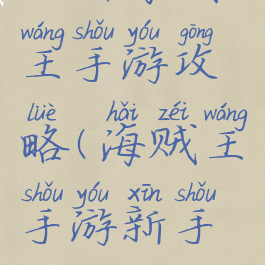 wáng shǒu yóu gōng
王手游攻
lüè hǎi zéi wáng
略(海贼王
shǒu yóu xīn shǒu
手游新手